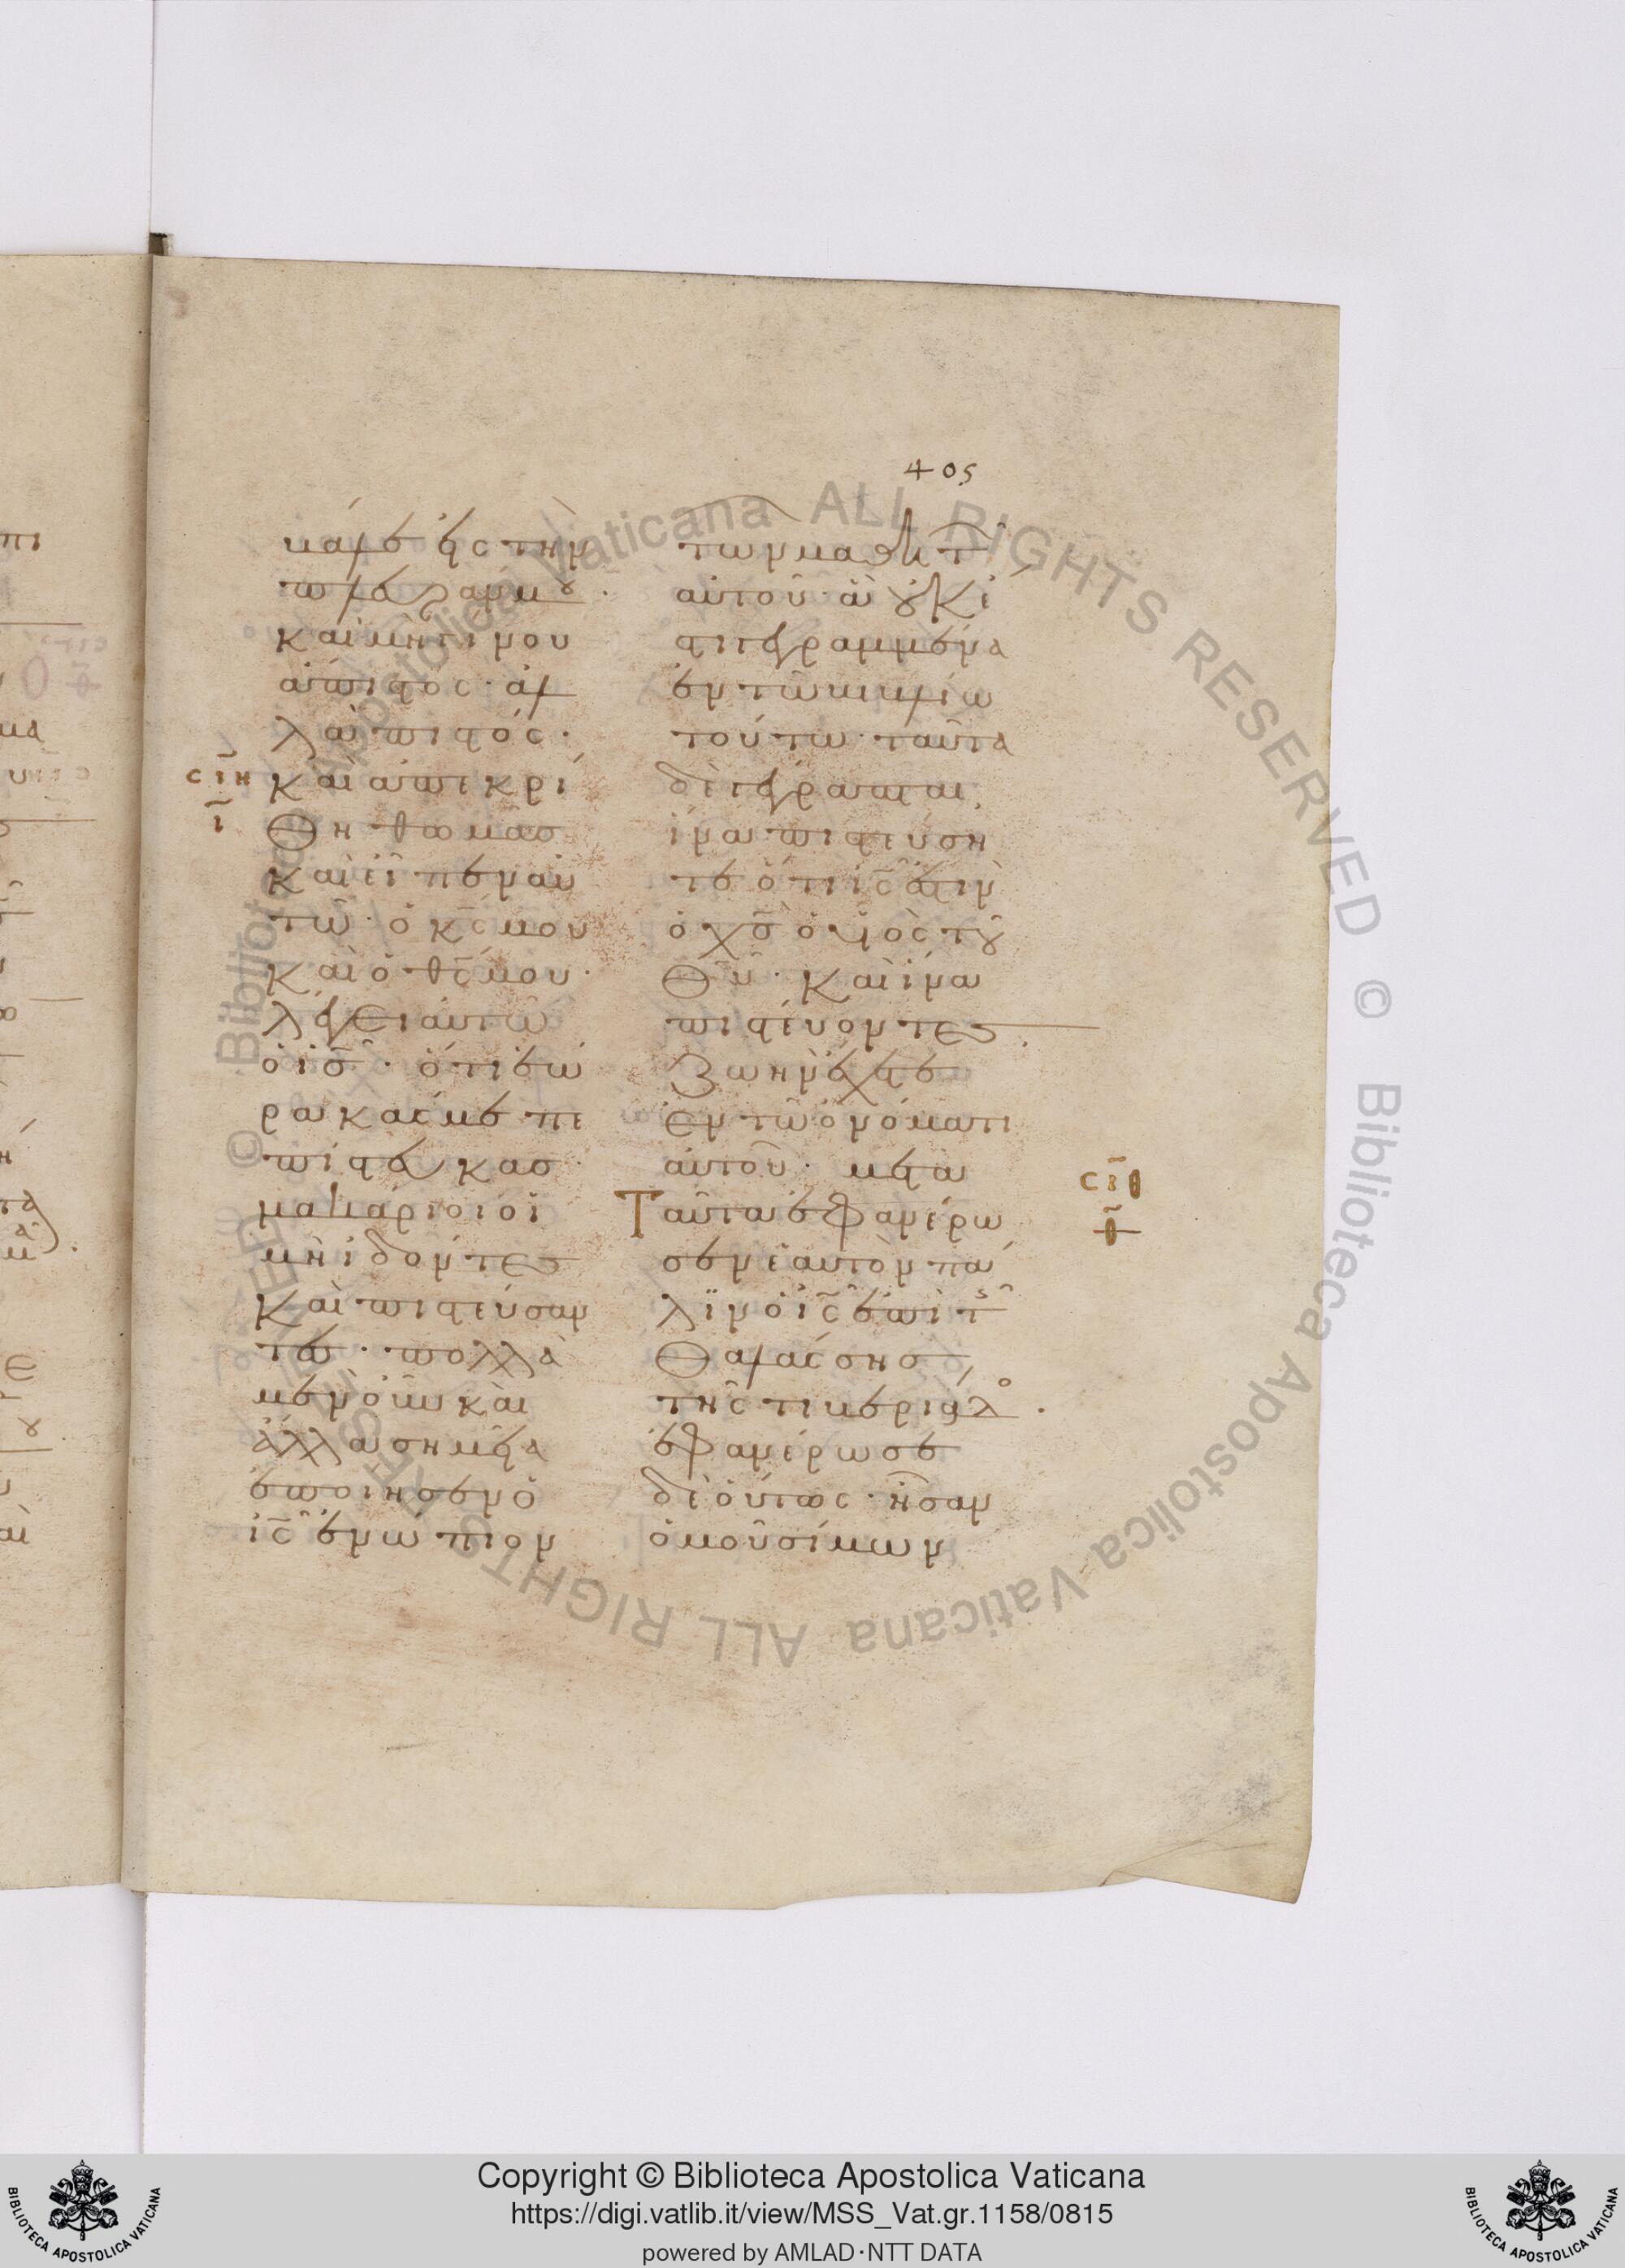 405
καὶ βάλε εἰς τὴν
πλευράν μου.
καὶ μὴ γίνου
ἄπιστος· ἀλ
λὰ πιστός.
σιη
ι
καὶ ἀπεκρί
θη θωμᾶσ
καὶ εἶπεν αὐ
τῶ· ὁ κς μου
καὶ ὁ θς μου·
λέγει αὐτῶ
ὁ ισ· ὅτι ἑώ
ρακάς με πε
πίστευκασ·
μακάριοι οἱ
μὴ ἰδόντες
καὶ πιστεύσαν
τεσ· πολλὰ
μὲν οὖν καὶ
ἄλλα σημεῖα
ἐποίησεν ὁ
ις ἐνώπιον
τῶν μαθητῶν
αὐτοῦ· ἃ οὐκ ἔ
στι γεγραμμένα
ἐν τῶ βιβλίω
τούτω· ταῦτα
δὲ γέγραπται,
ἵνα πιστεύση
τε ὅτι ις ἐστιν
ὁ χσ ὁ υἱὸς τοῦ
θυ· καὶ ἵνα
πιστεύοντες
ζωὴν ἔχητε
ἐν τῶ ὀνόματι
αὐτοῦ· μετὰ
σιθ
θ
Ταῦτα ἐφανέρω
σεν ἑαυτὸν πά
λιν ὁ ις ἐπὶ τῆς
θαλάσσησ
τῆς τιβεριάδο.
ἐφανέρωσε
δὲ οὕτως· ἦσαν
ὁμοῦ σίμων
Copyright © Biblioteca Apostolica Vaticana
https://digi.vatlib.it/view/MSS_Vat.gr.1158/0815
powered by AMLAD·NTT DATA
BIBLIOTECA APOSTOLICA VATICANA
BIBLIOTECA APOSTOLICA VATICANA
© Biblioteca Apostolica Vaticana ALL RIGHTS RESERVED © Biblioteca Apostolica Vaticana ALL RIGHTS RESERVED